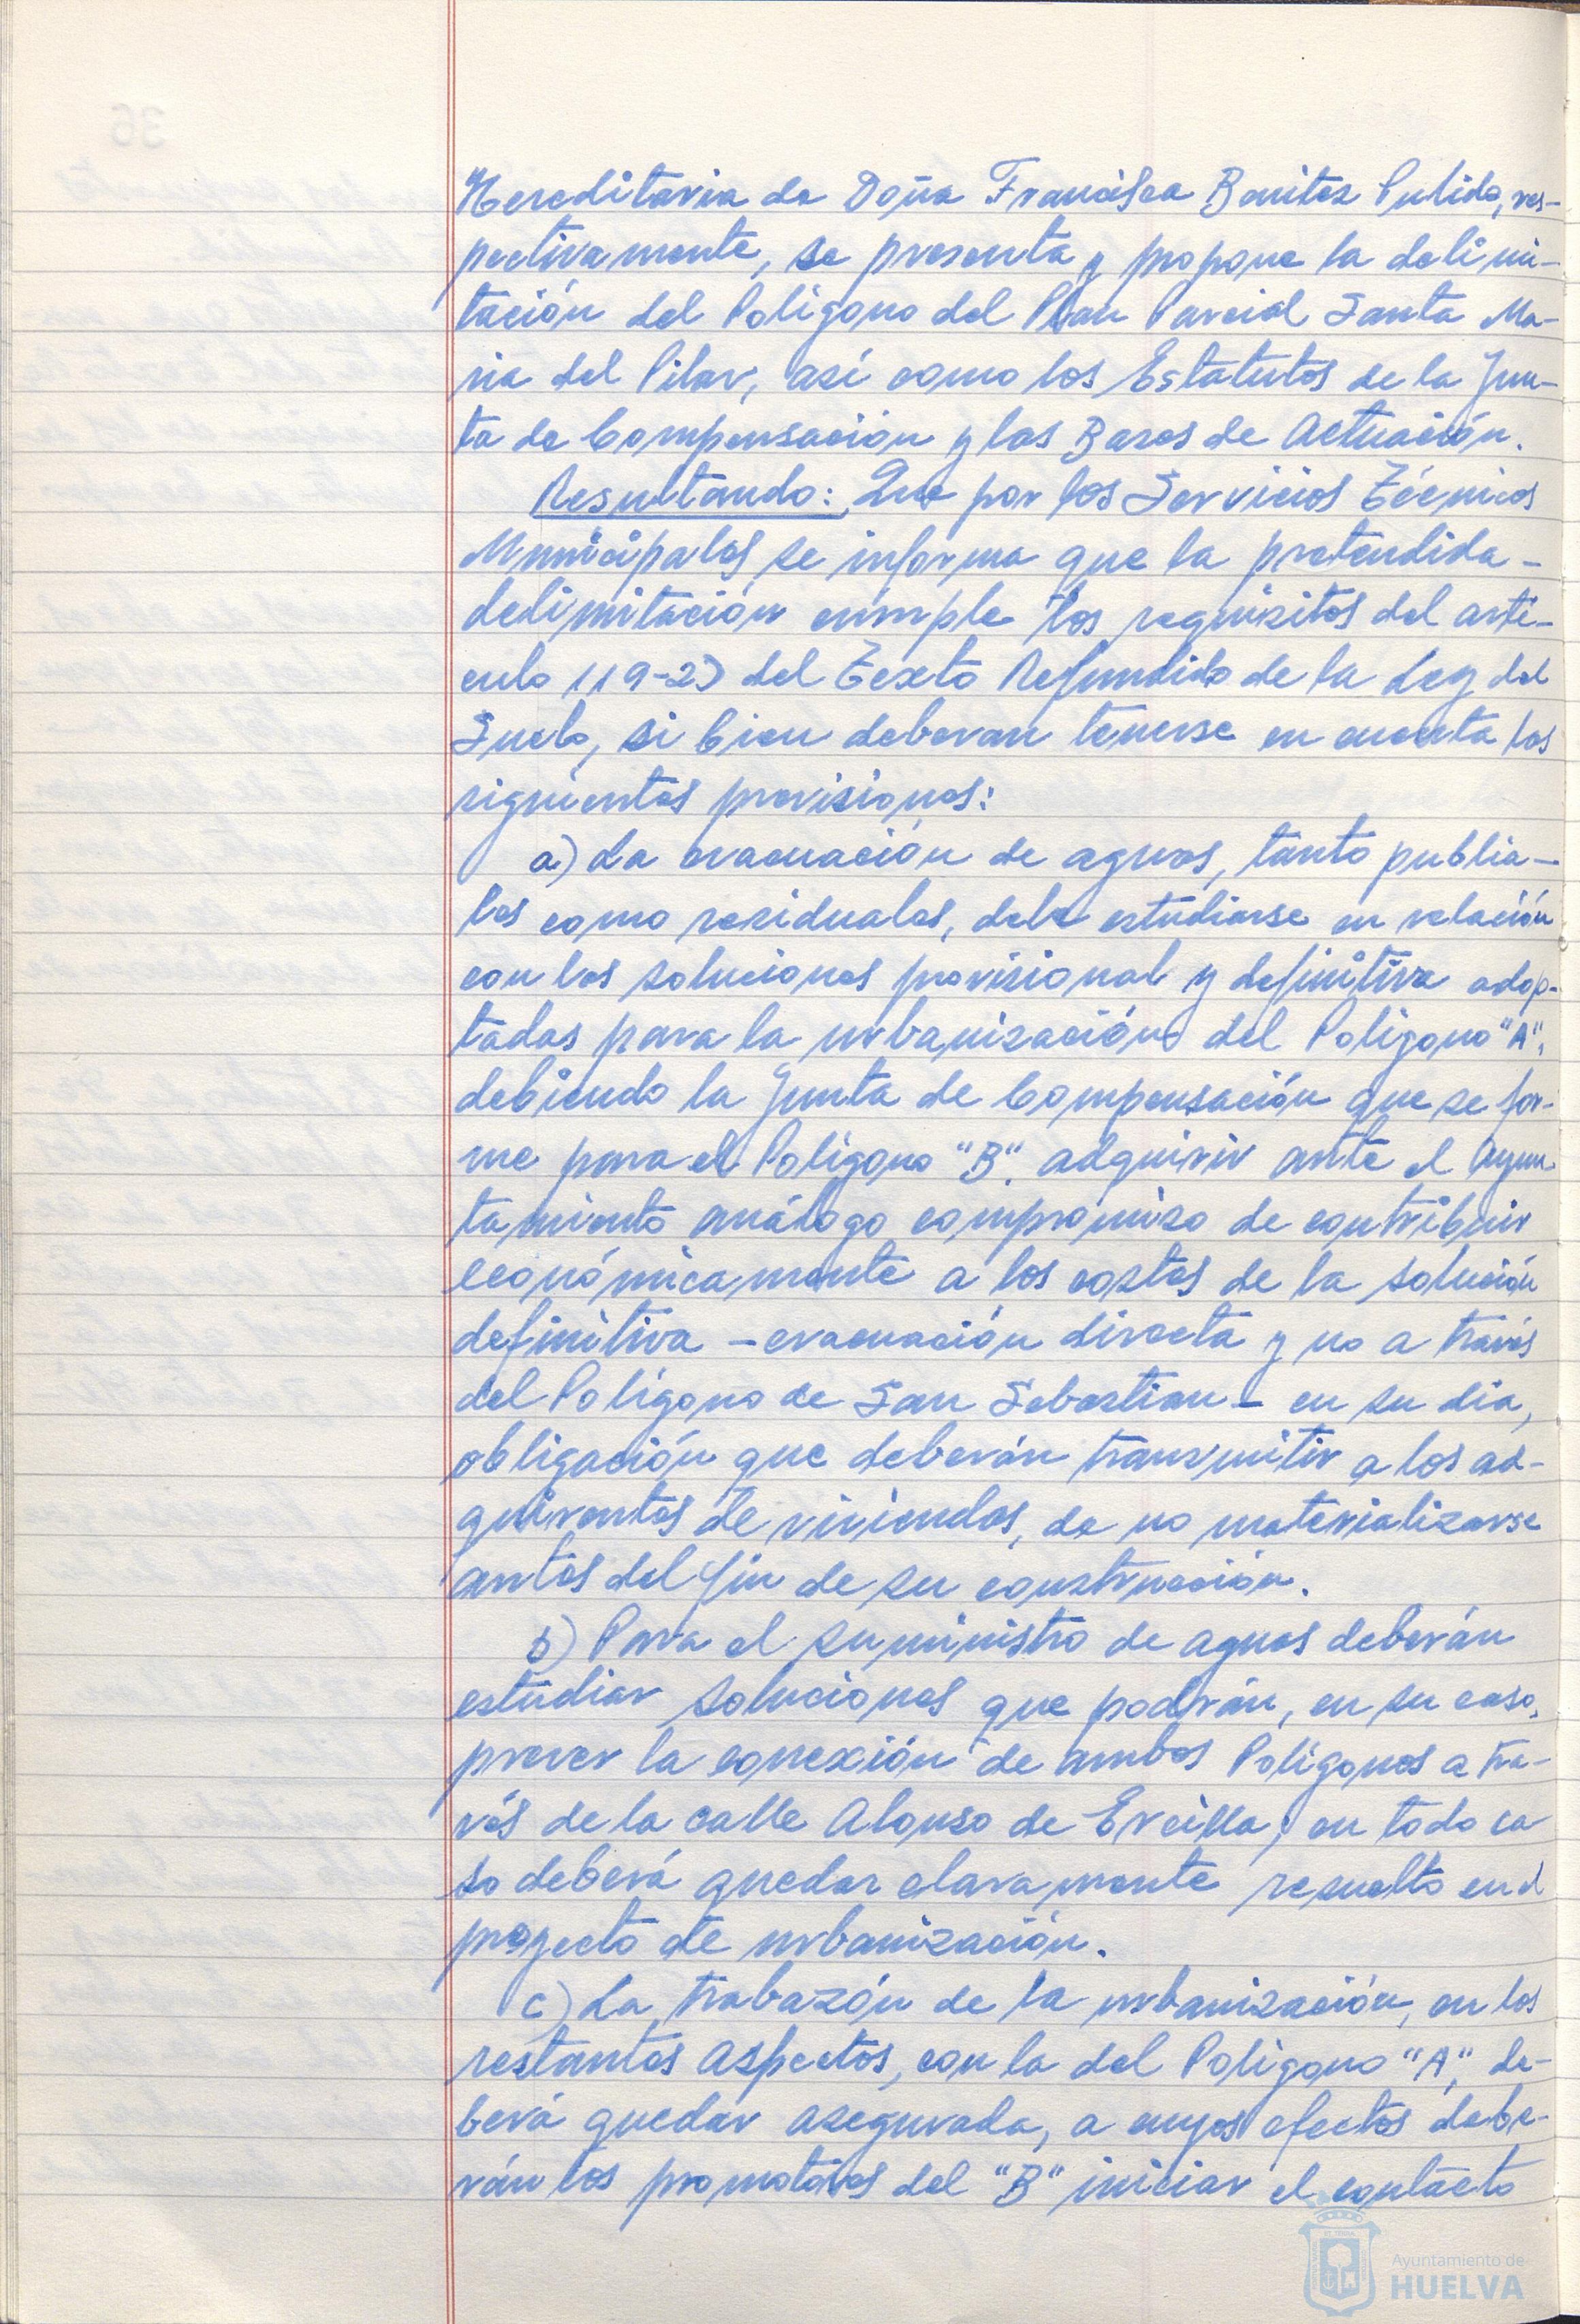 Hereditaria de Doña Francisca Benitez Pulido, res-
pectivamente, se presenta y propone la delimi-
tación del Poligono del Plan Parcial Santa Ma-
ria del Pilar, así como los Estatutos de la Jun-
ta de Compensación y las Bases de Actuación.
Resultando: Que por los Servicios Técnicos
Municipales se informa que la pretendida-
delimitación cumple los requisitos del artí-
culo 119-2) del Texto Refundido de la Ley del
Suelo, si bien deberan tenerse en cuenta las
siguientes previsiones:
a) La evacuación de aguas, tanto pubia-
les como residuales, debe estudiarse en relación
con las soluciones provisional y definitiva adop-
tadas para la urbanización del Poligono "A",
debiendo la Junta de Compensación que se for-
me para el Poligono "B". adquirir ante el Ayun-
tamiento análogo compromiso de contribuir
económicamente a los costes de la solución
definitiva - evacuación directa y no a través
del Polígono de San Sebastian - en su dia,
obligación que deberán transmitir a los ad-
quirentes de viviendas, de no materializarse
antes del fin de su construcción.
b) Para el suministro de aguas deberán
estudiar soluciones que podrán, en su caso,
prever la conexión de ambos Polígonos a tra-
vés de la calle Alonso de Ercilla; en todo ca
so deberá quedar claramente resuelto en el
proyecto de urbanización.
c) La trabazón de la urbanización, en los
restantes aspectos, con la del Poligono "A", de-
berá quedar asegurada, a cuyos efectos debe-
rán los promotores del "B" iniciar el contacto
Ayuntamiento de
HUELVA